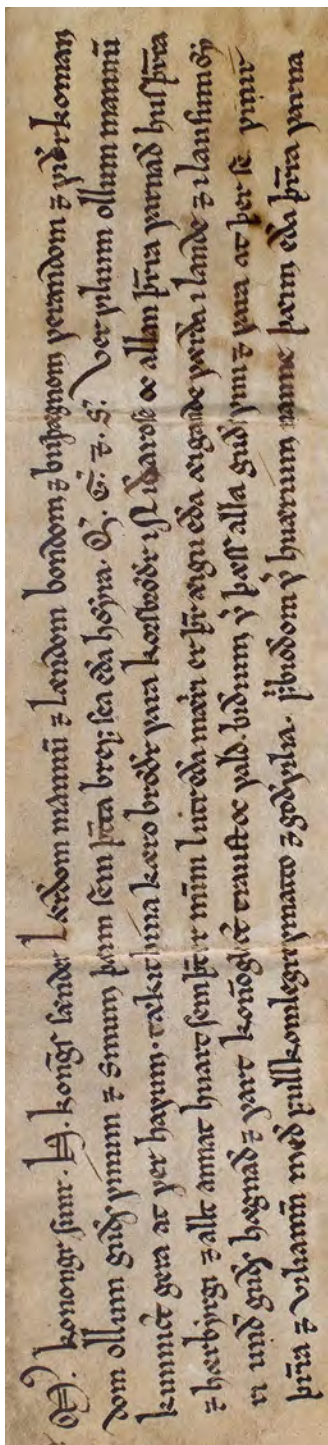 M. konongr sunr .H. kongs sænder Lærdom mannū ⁊ Lændom bondom ⁊ buþægnom verandom ⁊ viðrkoman
dom ollum guðs vinum ⁊ sinum þæim sēm þetta bref sea eða hœyra. Q. G. ⁊. S. Ver vilium ollum mannū
kunnict gera at ver hafum tækit hina kæro brœðr vara korsbrœðr i Niðarose oc allan þeirra varnað hus þeirra
⁊ hærbyrgi ⁊ allt annat huart sem þet er minni lutr eða mæiri er þeir æigu eða æigande værða i lande ⁊ i lausum œy
ri undir guðs hægnað ⁊ vart konoglect traust oc vald. bidium ver þæss alla guðs vini ⁊ vara at þer se vinir
þeirra ⁊ viliamenn með fullkomlegre vinatto ⁊ godvilia. firirbiodom ver huærium manne þæim eða þeirra varna